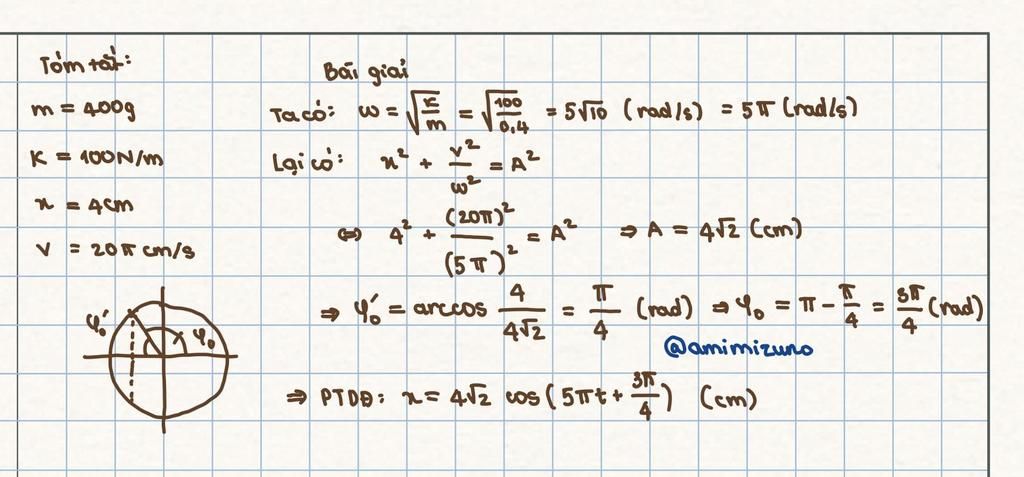 Tóm tắt:
m = 400g
K = 100N/m
x = 4cm
v = 20π cm/s
φ₀' φ₀
Bài giải
Ta có: ω = √(K/m) = √(100/0,4) = 5√10 (rad/s) = 5π (rad/s)
Lại có: x² + v²/ω² = A²
⇔ 4² + (20π)²/(5π)² = A² ⇒ A = 4√2 (cm)
⇒ φ₀' = arccos 4/(4√2) = π/4 (rad) ⇒ φ₀ = π - π/4 = 3π/4 (rad)
@amimizuno
⇒ PTDĐ: x = 4√2 cos(5πt + 3π/4) (cm)